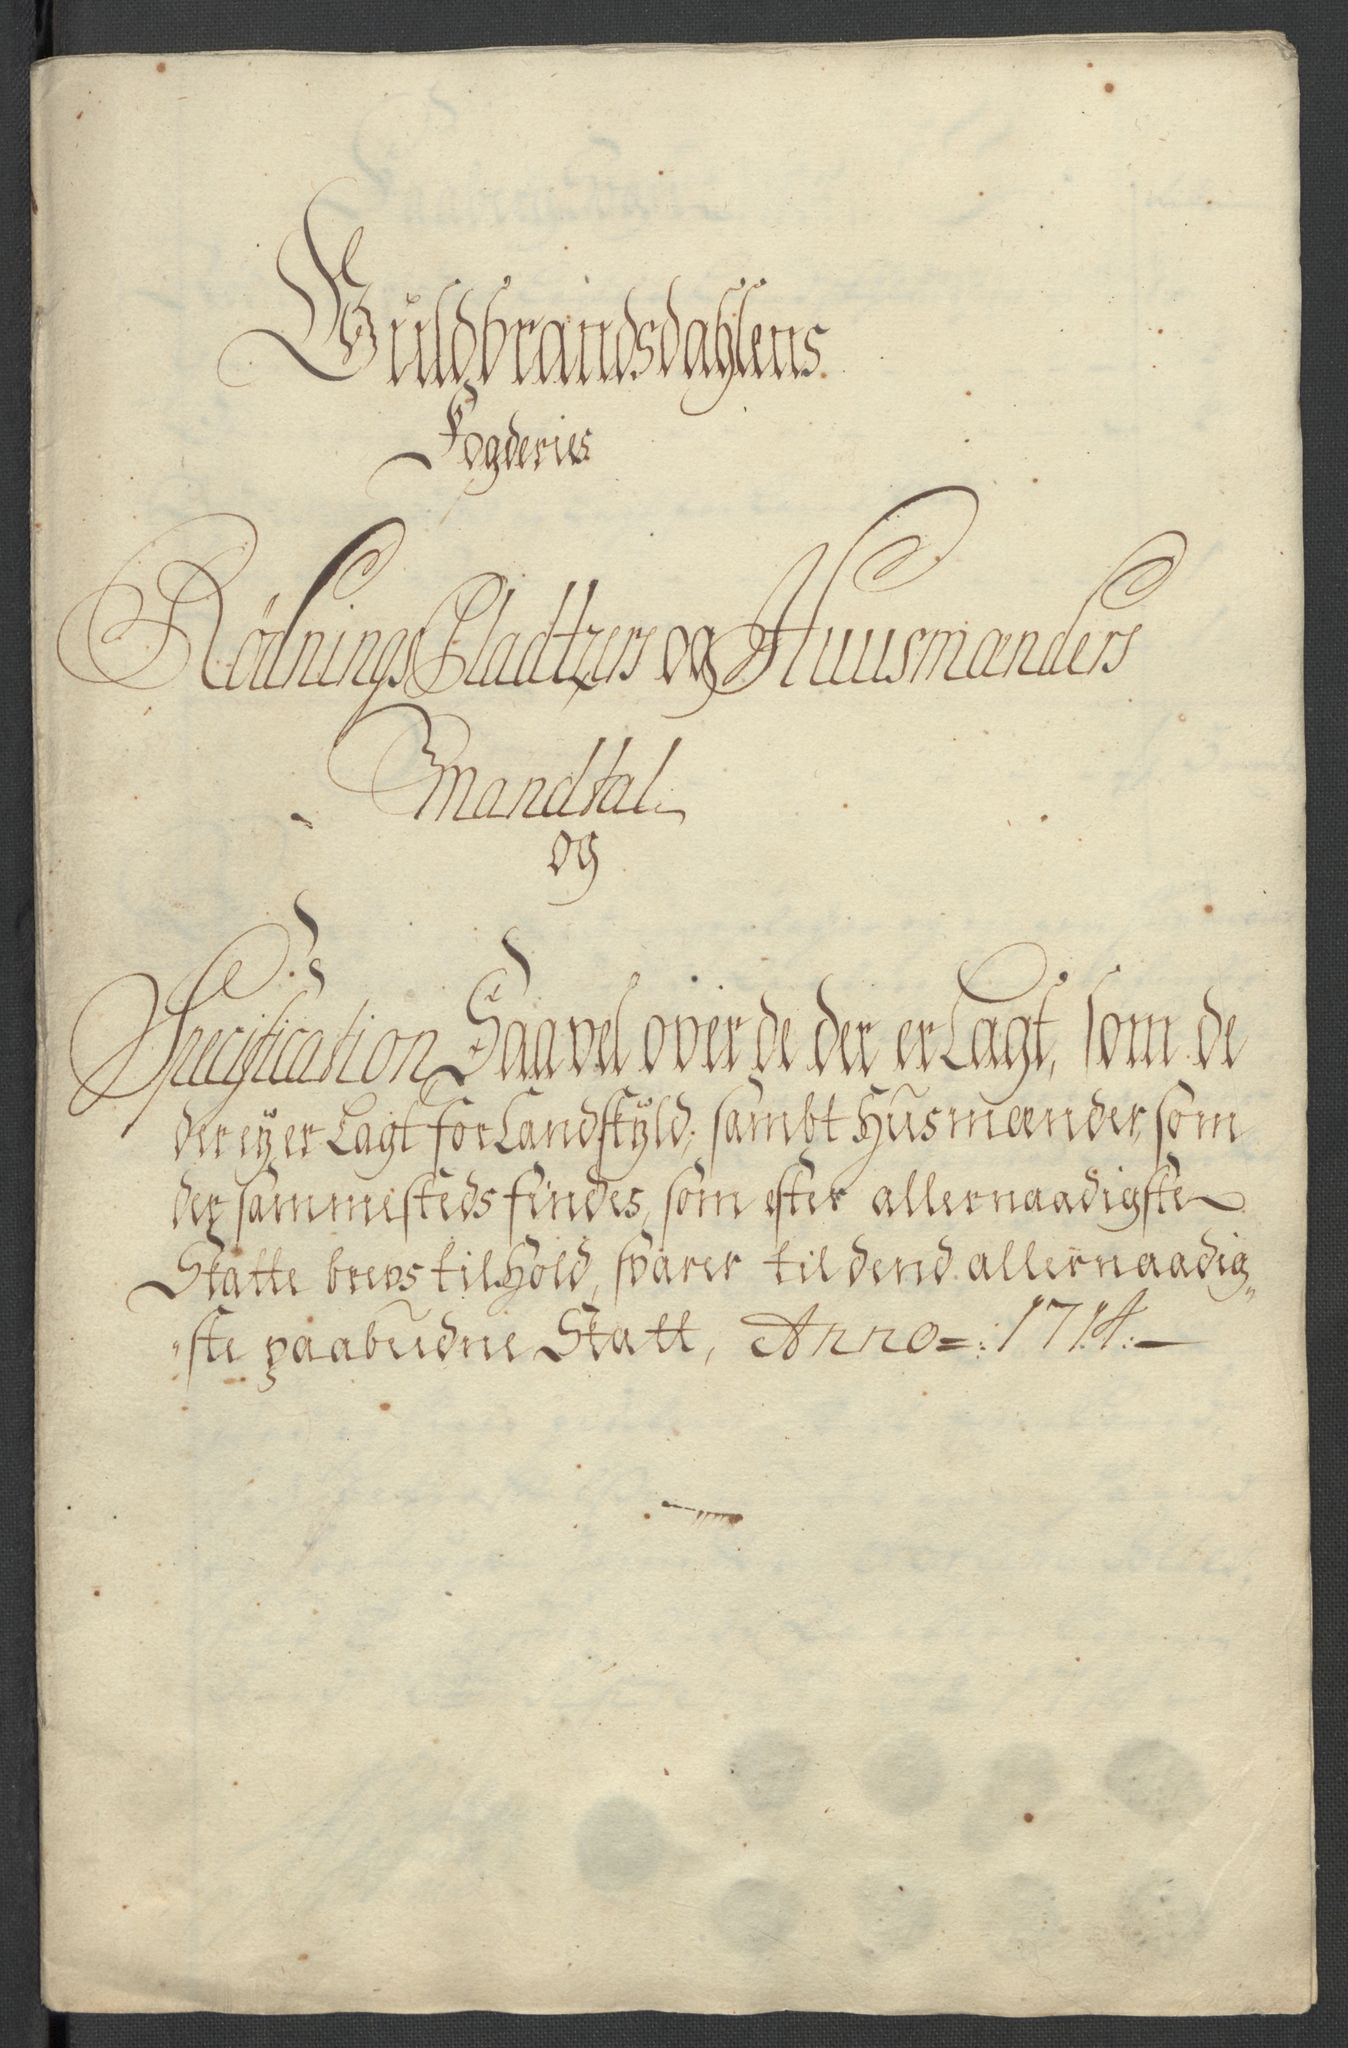 Guldbrandsdahlens
Fogderies
Rödnings Pladtzers og Huusmænders
Mandtal
og
Specification Saavel over de der er Lagt, som de
der ey er Lagt for Landskyld, sambt Husmænder, som
der sammesteds findes, som efter allernaadigste
Skatte brevs tilhold, svarer til dend allernaadig„
„ste paabudne Skatt, Anno =: 1714: